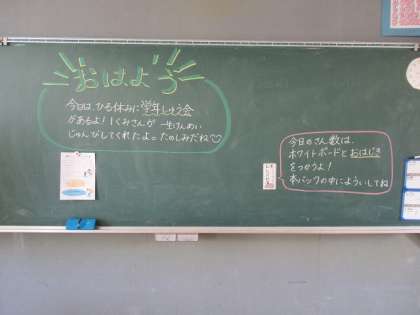 おはよう
今日は、ひる休みに学年しゅう会
があるよ！1くみさんが一生けんめい
じゅんびしてくれたよ。たのしみだね♡
今日のさん数は、
ホワイトボードとおはじき
をつかうよ！
本バックの中にようしいてね